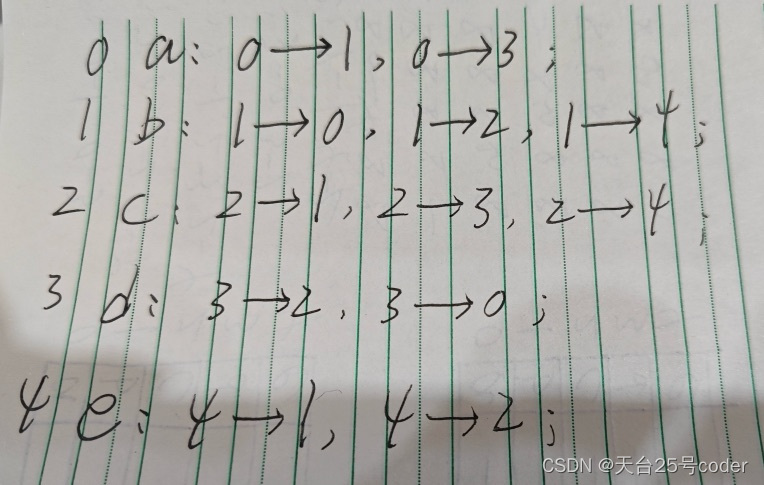 0 a: 0→1, 0→3;
1 b: 1→0, 1→2, 1→4;
2 c: 2→1, 2→3, 2→4;
3 d: 3→2, 3→0;
4 e: 4→1, 4→2;
CSDN @天台25号coder